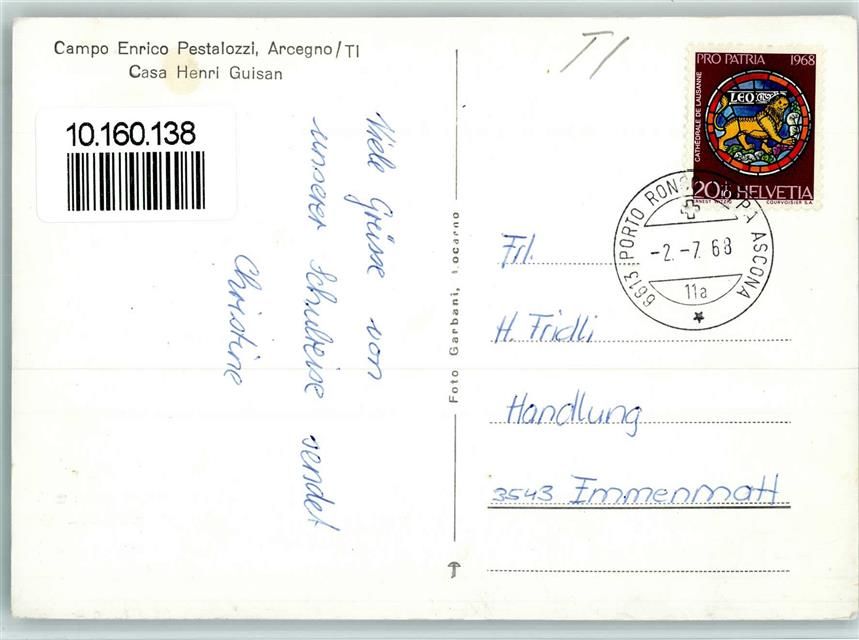 Campo Enrico Pestalozzi, Arcegno/TI
Casa Henri Guisan
10.160.138
TI
Viele Grüsse von
unserer Schulreise sendet
Christine
Foto Garbani, Locarno
PRO PATRIA 1968
CATHÉDRALE DE LAUSANNE
LEO
20+10 HELVETIA
COURVOISIER S.A.
6613 PORTO RONCO ASCONA
-2.-7.68
11a
Frl.
H. Fridli
Handlung
3543 Emmenmatt